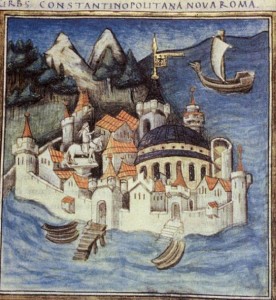 URBS CONSTANTINOPOLITANA NOVA ROMA